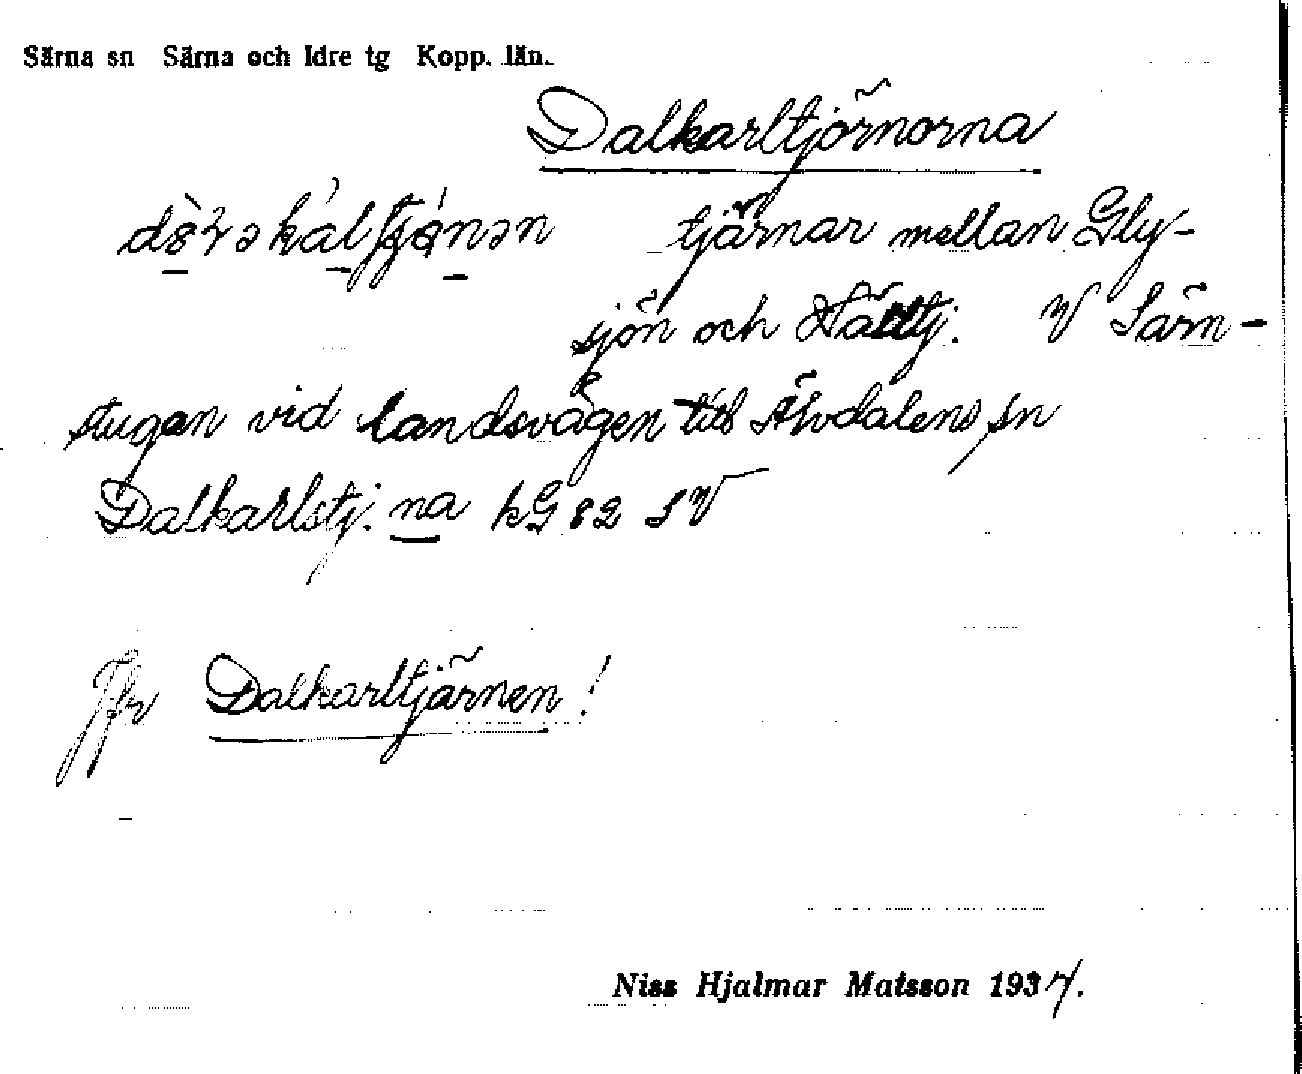 Särna sn Särna och Idre tg Kopp. län.
Dalkarltjärnorna
tjärnar mellan Gly-
sjön och Nättj. V Särn-
stugan vid landsvägen till Älvdalens sn
Dalkarlstj. na kG 82 SV
Jfr Dalkarltjärnen!
Niss Hjalmar Matsson 1937.